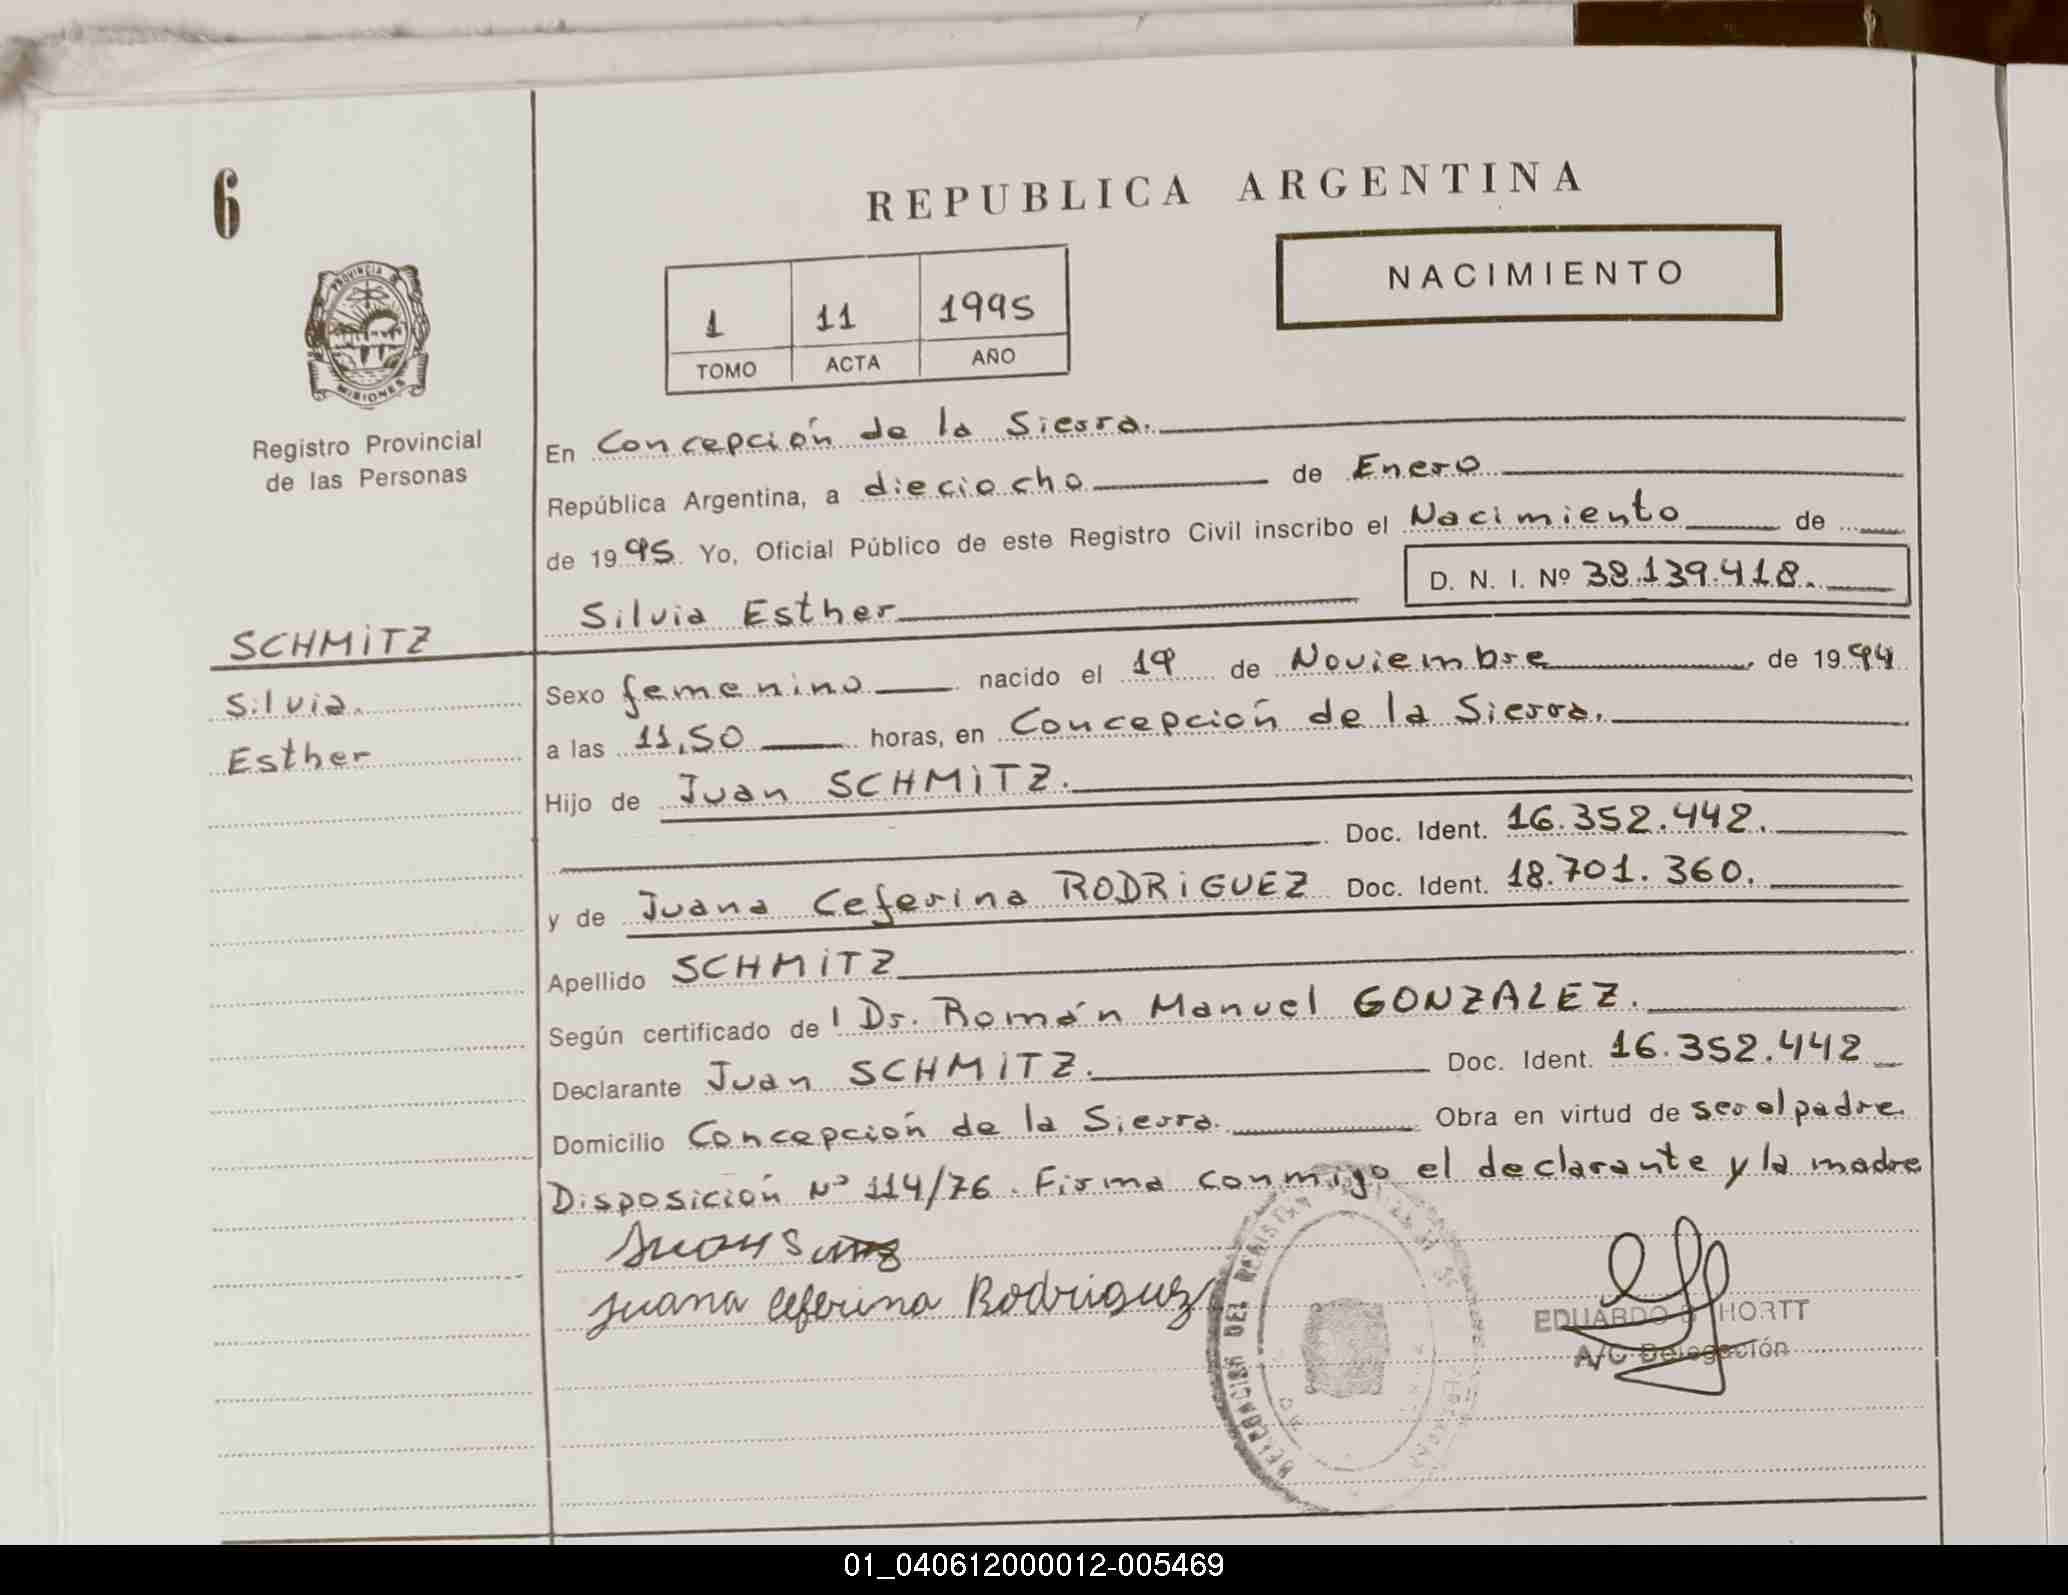 6
REPUBLICA ARGENTINA
PROVINCIA DE
MISIONES
NACIMIENTO
1 11 1995
TOMO ACTA AÑO
Registro Provincial
de las Personas
En Concepción de la Sierra.
República Argentina, a dieciocho de Enero
de 1995. Yo, Oficial Público de este Registro Civil inscribo el Nacimiento de
D. N. I. Nº 38.139.418.
Silvia Esther
SCHMITZ
Silvia
Esther
Sexo femenino nacido el 19 de Noviembre de 1994
a las 11,50 horas, en Concepción de la Sierra.
Hijo de Juan SCHMITZ.
Doc. Ident. 16.352.442.
y de Juana Ceferina RODRIGUEZ Doc. Ident. 18.701.360.
Apellido SCHMITZ
Según certificado del Dr. Román Manuel GONZALEZ.
Declarante Juan SCHMITZ. Doc. Ident. 16.352.442
Domicilio Concepción de la Sierra. Obra en virtud de ser el padre.
Disposición Nº 114/76. Firma conmigo el declarante y la madre
Juana Ceferina Rodriguez
DELEGACION DEL REGISTRO
EDUARDO HORTT
A/C Delegación
01_040612000012-005469